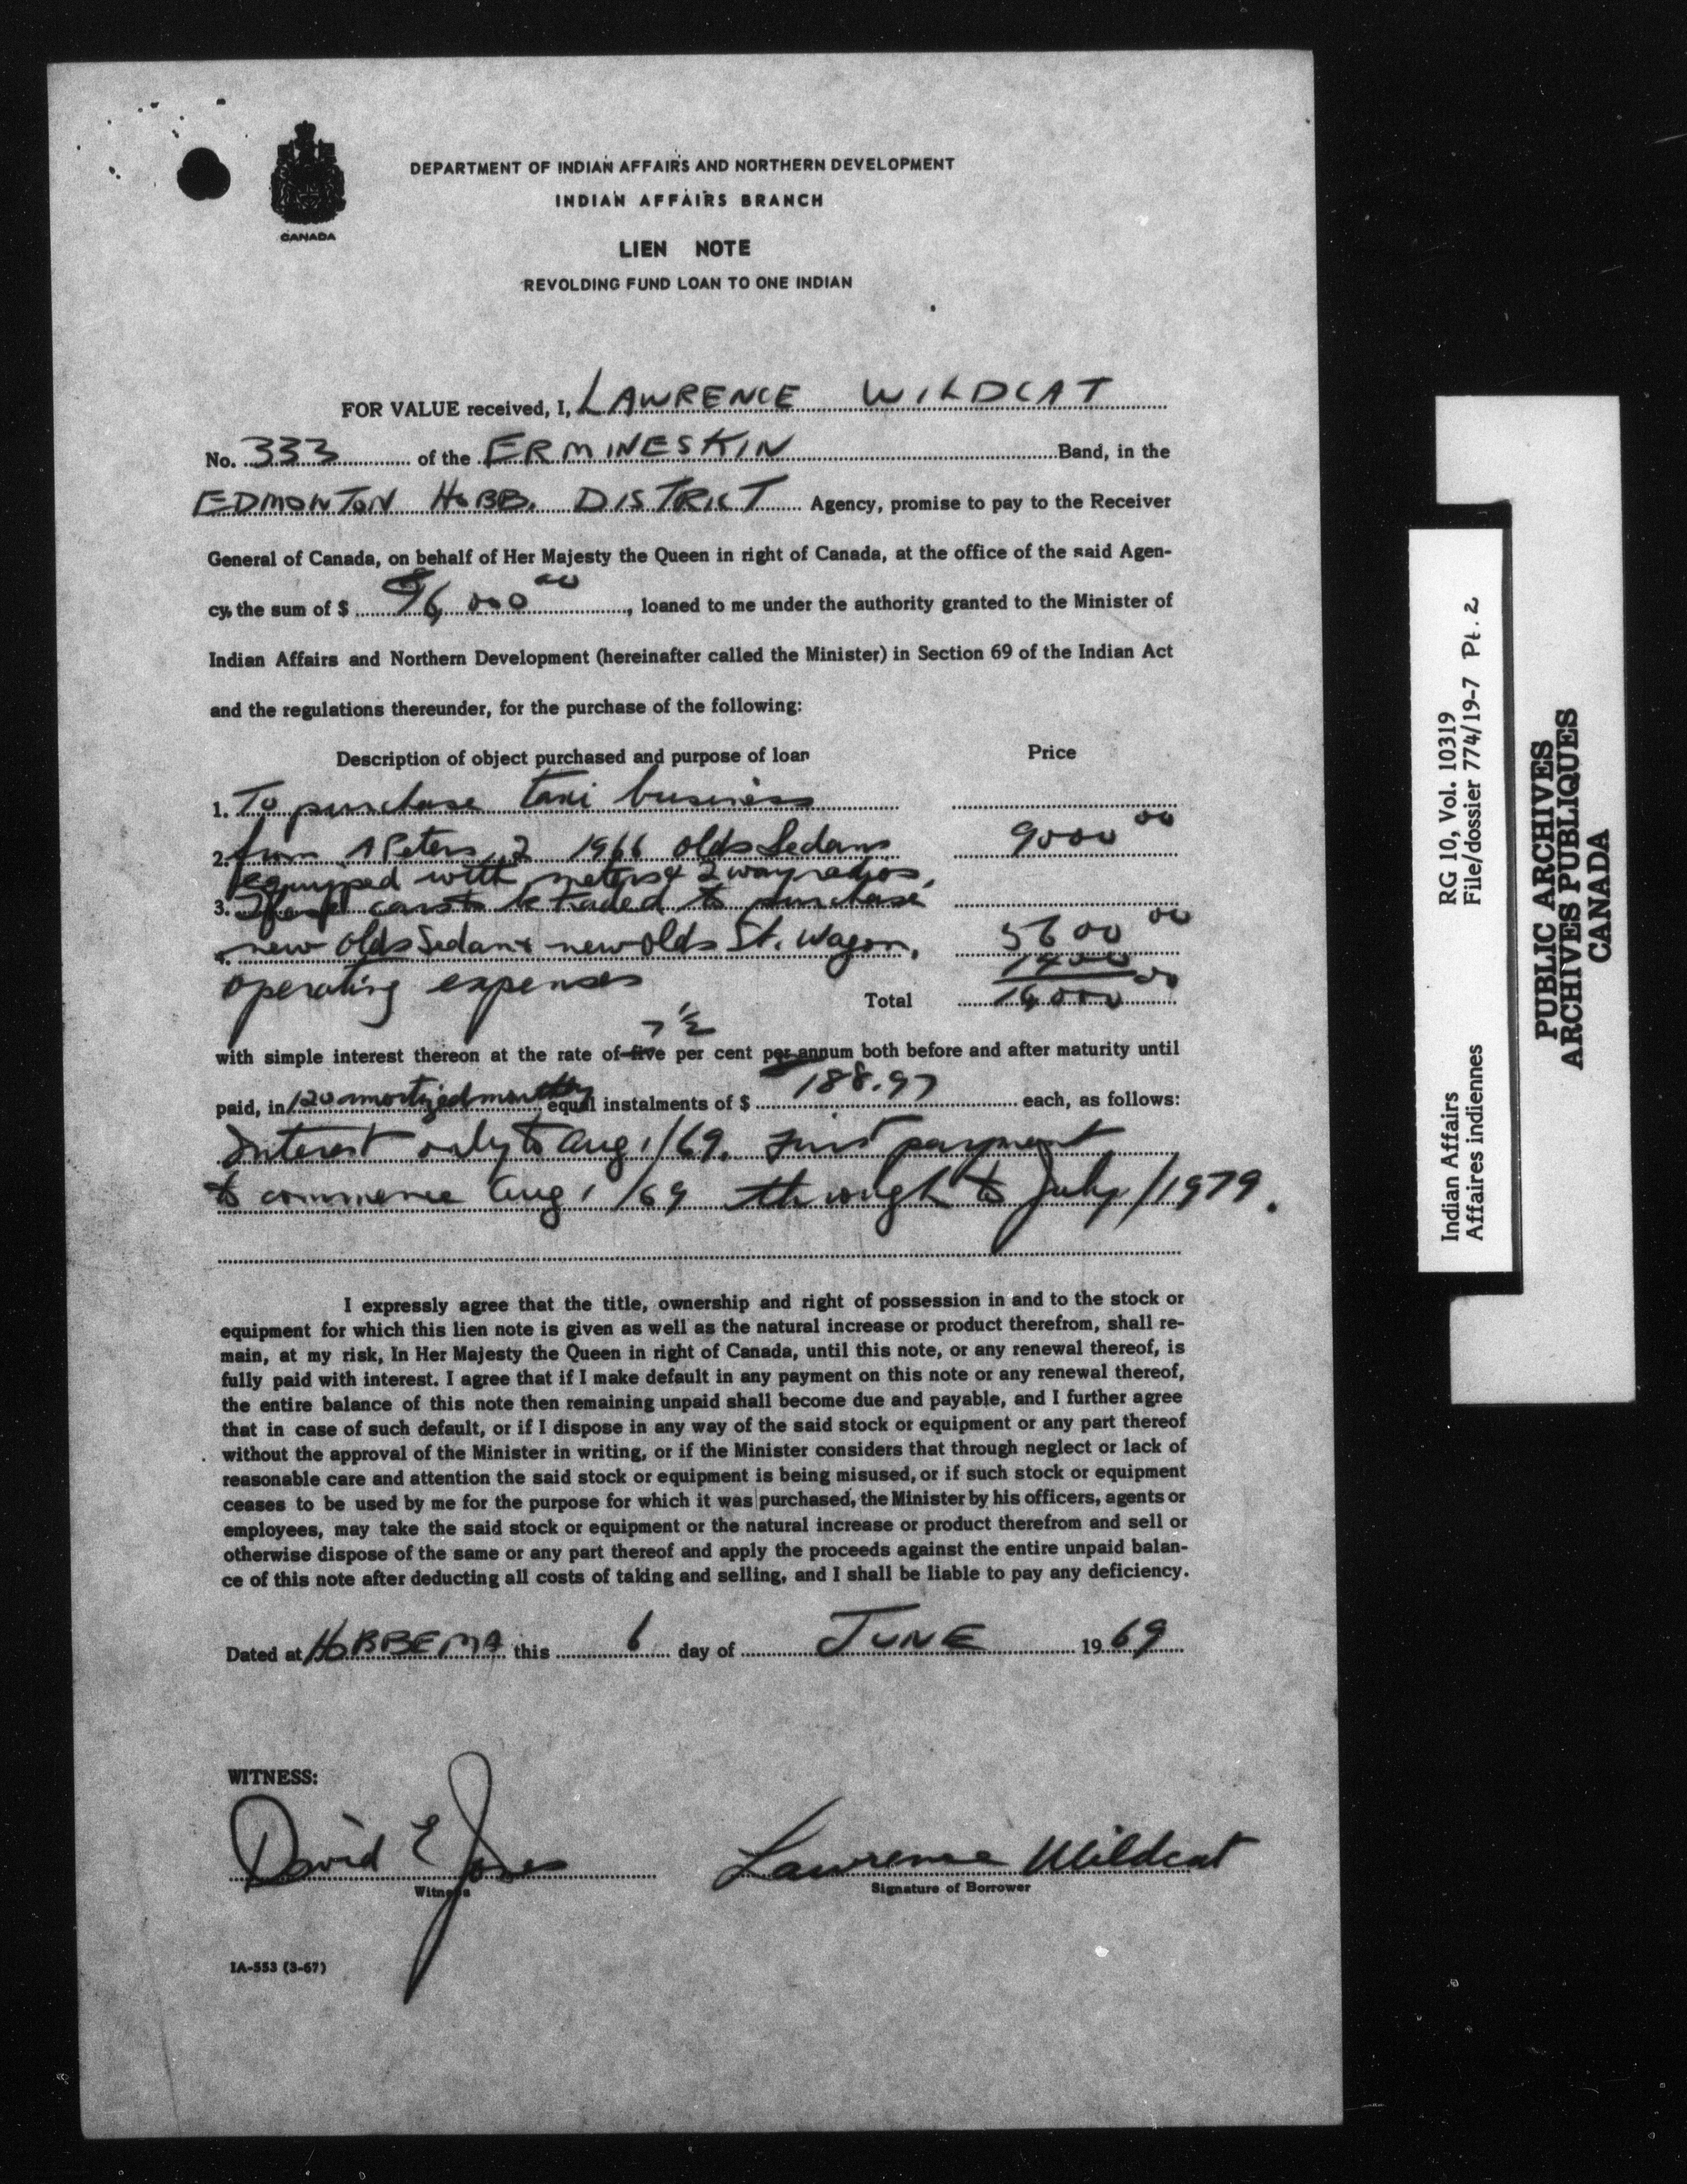 CANADA
DEPARTMENT OF INDIAN AFFAIRS AND NORTHERN DEVELOPMENT
INDIAN AFFAIRS BRANCH
LIEN NOTE
REVOLDING FUND LOAN TO ONE INDIAN
FOR VALUE received, I, LAWRENCE WILDCAT
No. 333 of the ERMINESKIN Band, in the
EDMONTON HOBB. DISTRICT Agency, promise to pay to the Receiver
General of Canada, on behalf of Her Majesty the Queen in right of Canada, at the office of the said Agen-
cy, the sum of $ 16,000 00, loaned to me under the authority granted to the Minister of
Indian Affairs and Northern Development (hereinafter called the Minister) in Section 69 of the Indian Act
and the regulations thereunder, for the purchase of the following:
Description of object purchased and purpose of loan Price
1. To purchase taxi business
2. from A Peters, 2 1966 olds Sedans 9000 00
equipped with meters & 2 way radios.
3. These cars to be traded to purchase
4. new olds Sedan & new olds St. Wagon. 5600 00
operating expenses 1400
Total 16,000 00
7 1/2
with simple interest thereon at the rate of five per cent per annum both before and after maturity until
paid, in 120 amortized monthly equal instalments of $ 188.97 each, as follows:
Interest only to Aug 1/69. First payment
to commence Aug 1/69 through to July/1979.
I expressly agree that the title, ownership and right of possession in and to the stock or
equipment for which this lien note is given as well as the natural increase or product therefrom, shall re-
main, at my risk, In Her Majesty the Queen in right of Canada, until this note, or any renewal thereof, is
fully paid with interest. I agree that if I make default in any payment on this note or any renewal thereof,
the entire balance of this note then remaining unpaid shall become due and payable, and I further agree
that in case of such default, or if I dispose in any way of the said stock or equipment or any part thereof
without the approval of the Minister in writing, or if the Minister considers that through neglect or lack of
reasonable care and attention the said stock or equipment is being misused, or if such stock or equipment
ceases to be used by me for the purpose for which it was purchased, the Minister by his officers, agents or
employees, may take the said stock or equipment or the natural increase or product therefrom and sell or
otherwise dispose of the same or any part thereof and apply the proceeds against the entire unpaid balan-
ce of this note after deducting all costs of taking and selling, and I shall be liable to pay any deficiency.
Dated at HOBBEMA this 6 day of JUNE 1969
WITNESS:
David E Jones Lawrence Wildcat
Witness Signature of Borrower
IA-553 (3-67)
Indian Affairs RG 10, Vol. 10319
Affaires indiennes File/dossier 774/19-7 Pt. 2
PUBLIC ARCHIVES
ARCHIVES PUBLIQUES
CANADA